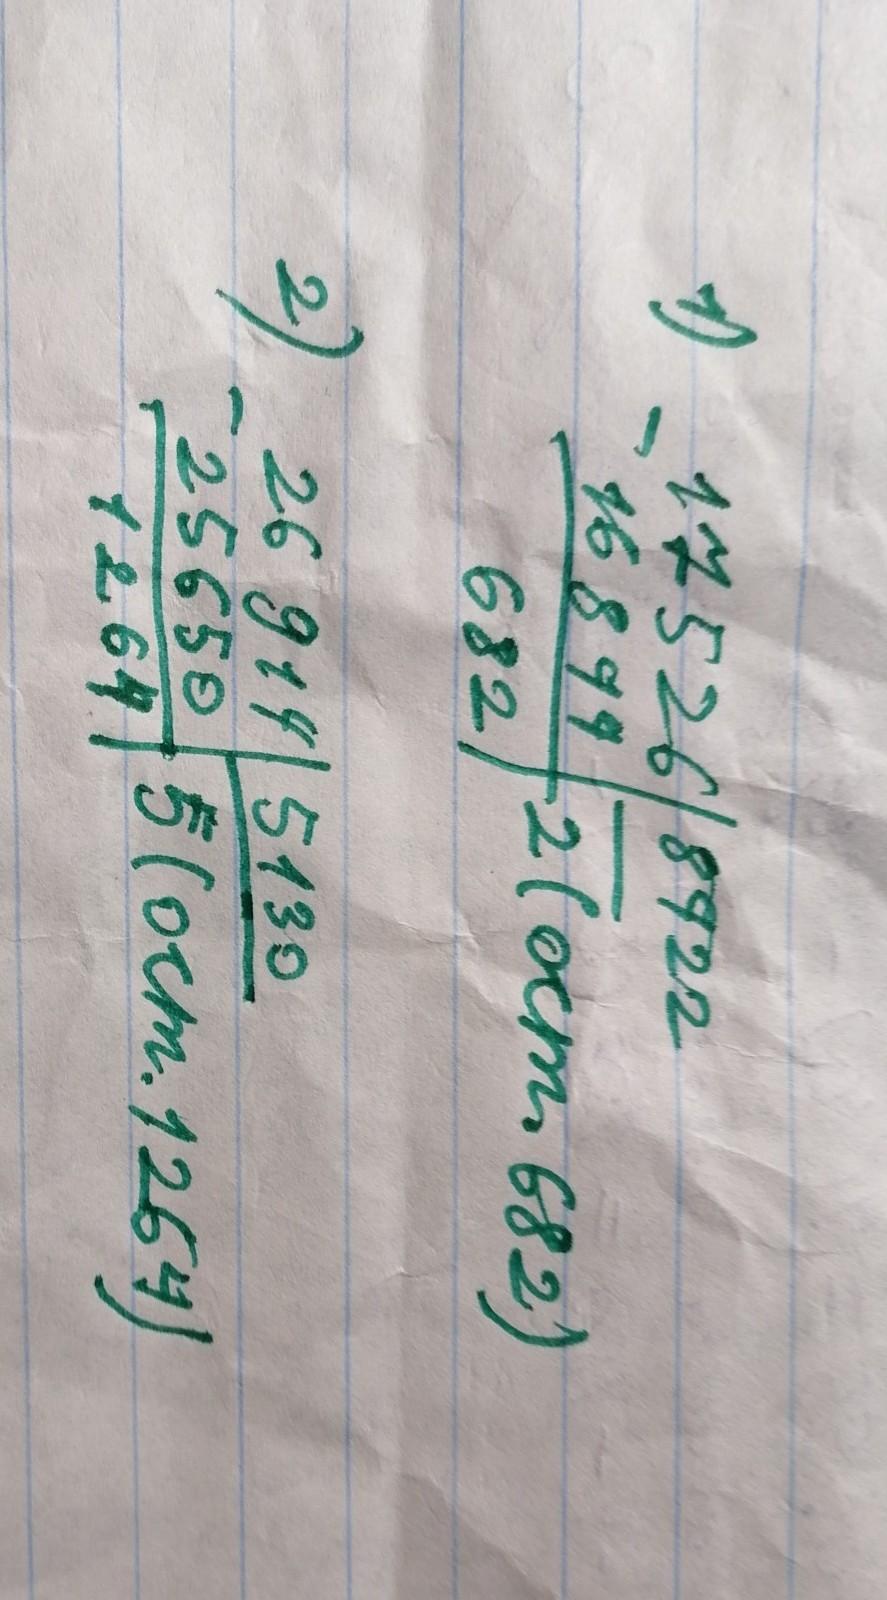 1) 17526|8422
- 16844| 2 (ост. 682)
682
2) 26914|5130
- 25650| 5 (ост. 1264)
1264